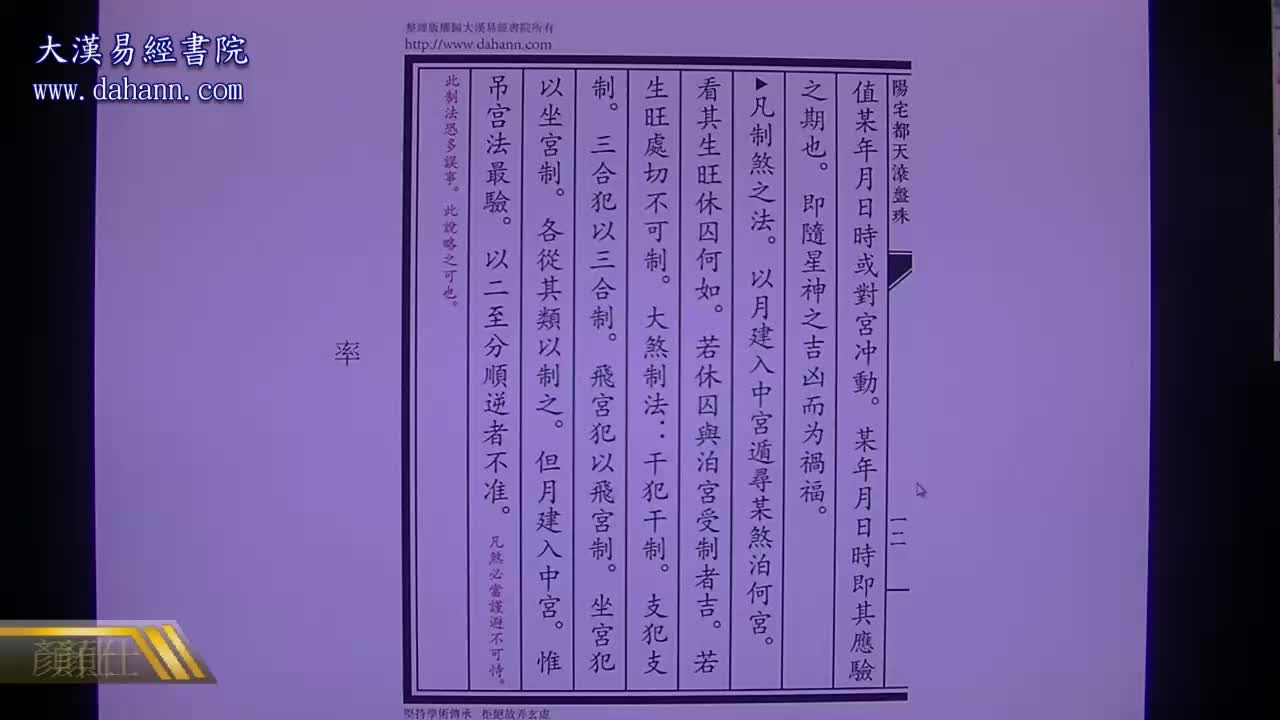 大漢易經書院
www.dahann.com
整理版權歸大漢易經書院所有
http://www.dahann.com
陽宅都天滾盤珠
一二
值某年月日時或對宮冲動。某年月日時即其應驗
之期也。即隨星神之吉凶而为禍福。
▶凡制煞之法。以月建入中宮遁尋某煞泊何宮。
看其生旺休囚何如。若休囚與泊宮受制者吉。若
生旺處切不可制。大煞制法：干犯干制。支犯支
制。三合犯以三合制。飛宮犯以飛宮制。坐宮犯
以坐宮制。各從其類以制之。但月建入中宮。惟
吊宮法最驗。以二至分順逆者不准。凡煞必當謹避不可恃。
此制法恐多誤事。此說略之可也。
率
堅持學術傳承 拒絕故弄玄虛